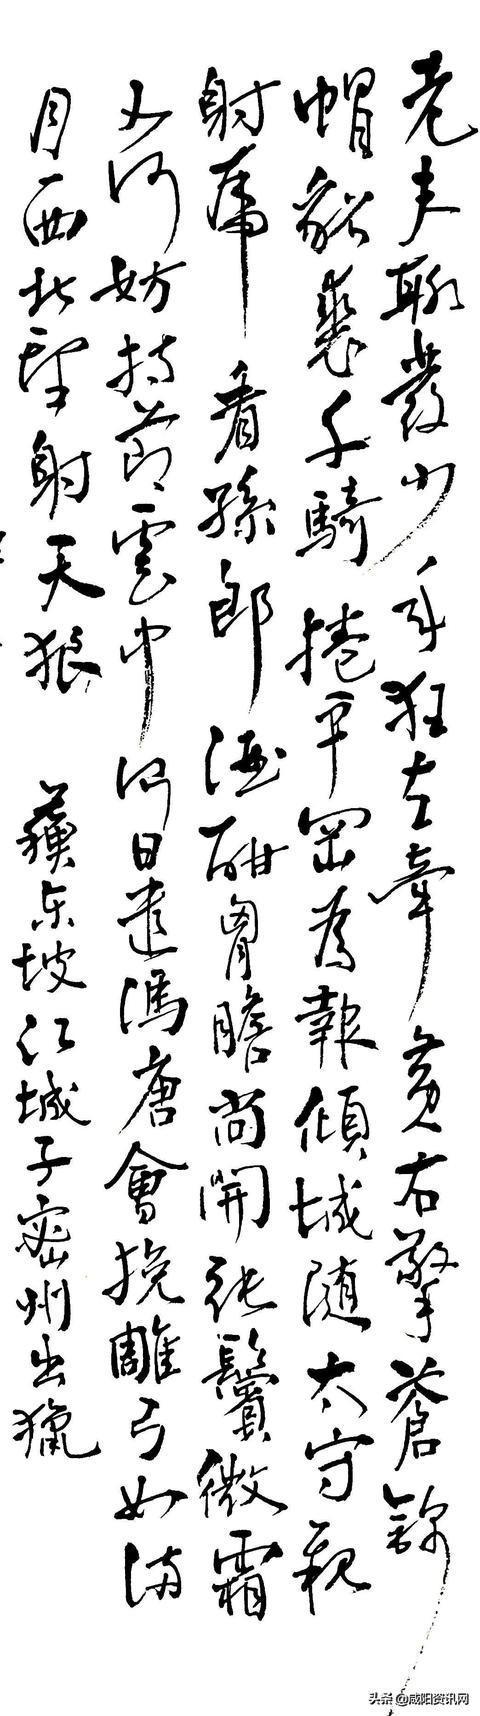 老夫聊發少年狂左牽黄右擎蒼錦
帽貂裘千騎捲平岡為報傾城隨太守親
射虎看孫郎酒酣胷膽尚開張鬢微霜
又何妨持節雲中何日遣馮唐會挽雕弓如滿
月西北望射天狼 蘇东坡江城子密州出獵
头条 @咸阳资讯网